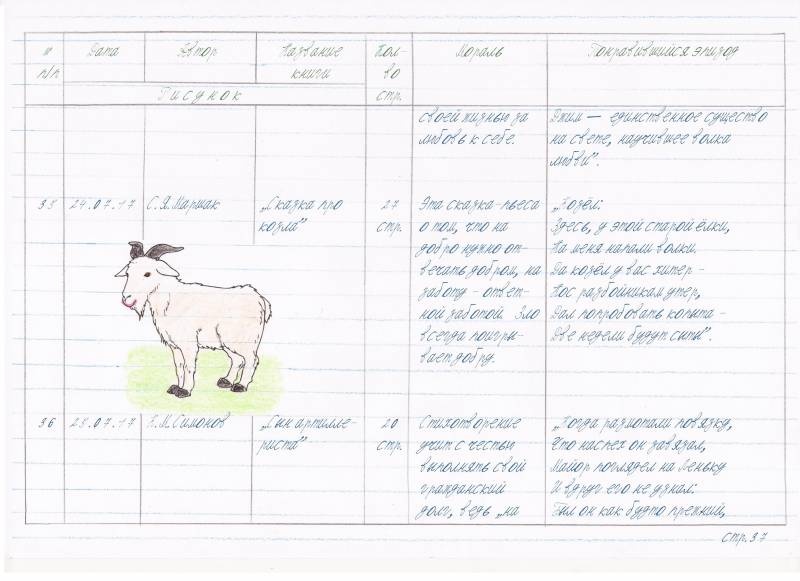 № п/п
Дата
Автор
Название книги
Кол-во стр.
Мораль
Понравившийся эпизод
Рисунок
своей жизнью за
любовь к себе.
Джим — единственное существо
на свете, научившее волка
любви".
35
24.07.17
С.Я.Маршак
„Сказка про
козла"
27
стр.
Эта сказка-пьеса
о том, что на
добро нужно от-
вечать добром, на
заботу - ответ-
ной заботой. Зло
всегда проигры-
вает добру.
„Козёл:
Здесь, у этой старой ёлки,
На меня напали волки.
Да козёл у вас хитёр -
Нос разбойникам утёр,
Дал попробовать копыта -
Две недели будут сыты".
36
25.07.17
К.М.Симонов
„Сын артилле-
риста"
20
стр.
Стихотворение
учит с честью
выполнять свой
гражданский
долг, ведь „на
„Когда размотали повязку,
Что наспех он завязал,
Майор поглядел на Лёньку
И вдруг его не узнал:
Был он как будто прежний,
стр.37